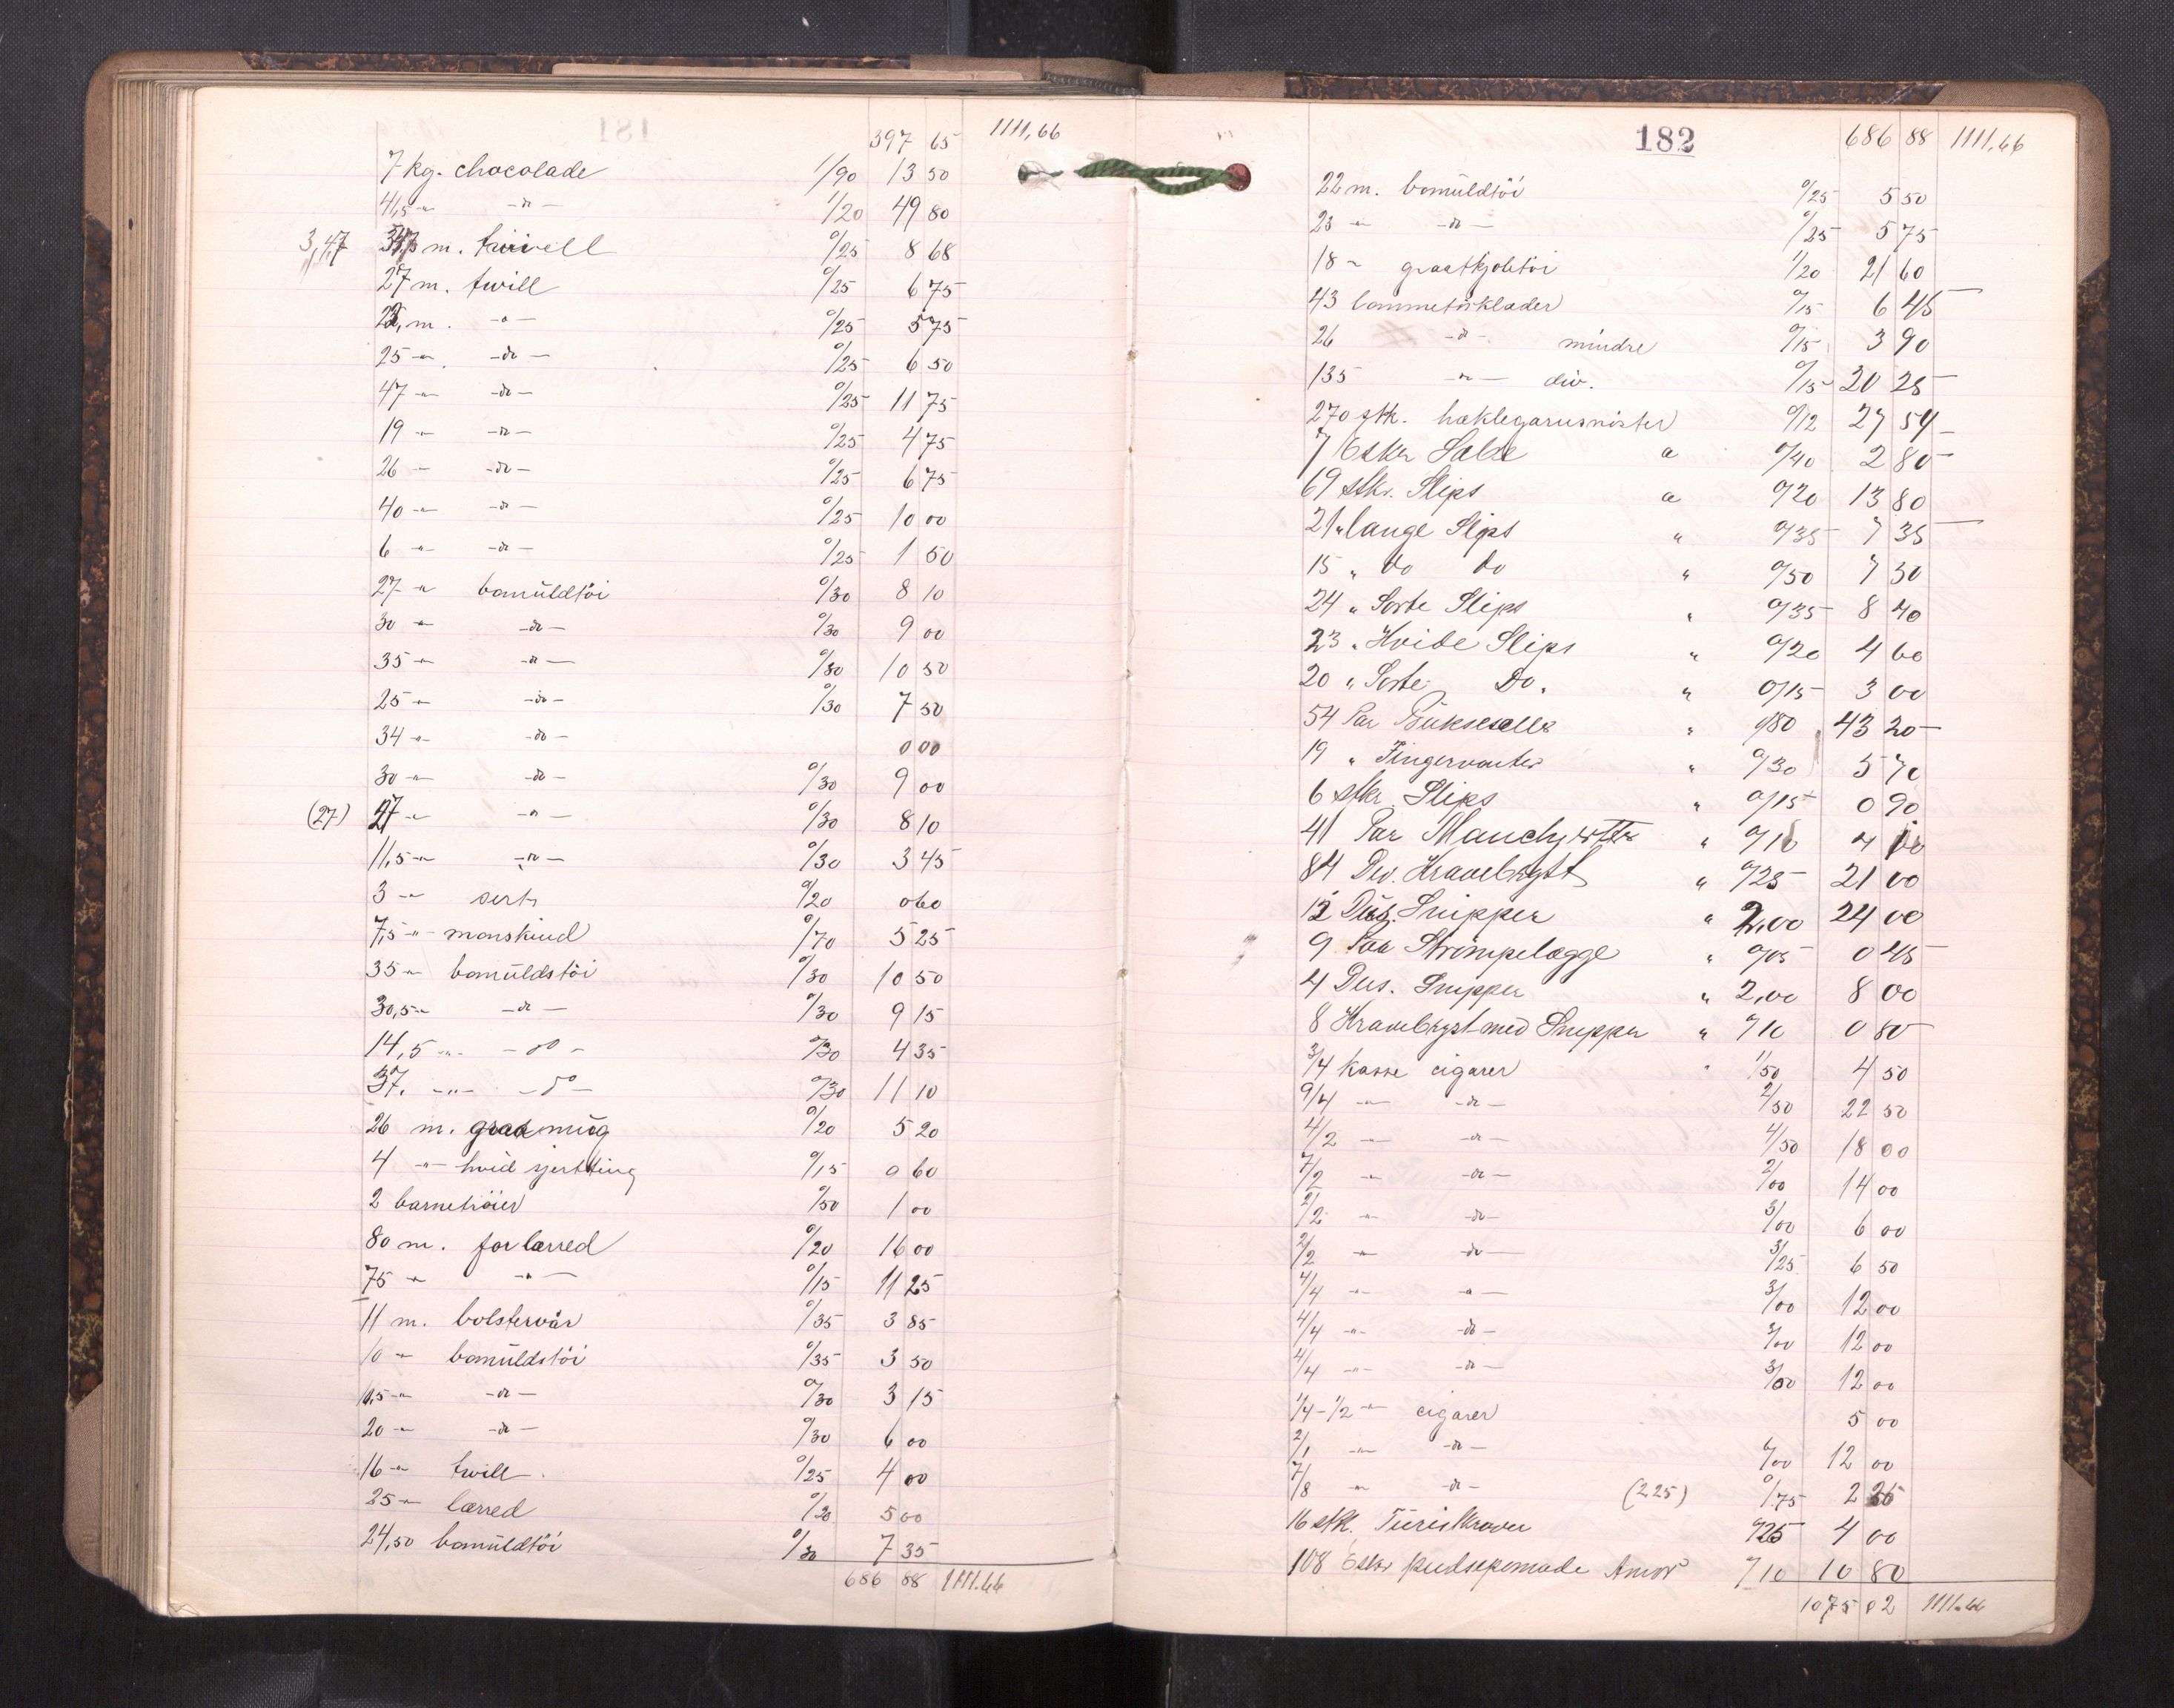 397 65 1111,66
7 kg. chocolade 1/90 13 50
41,5 -"- -do- 1/20 49 80
3,47 m. 0/25 8 68
27 m. twill 0/25 6 75
23, m. -"- 0/25 5 75
25 -"- -do- 0/25 6 50
47 -"- -do- 0/25 11 75
19 -"- -do- 0/25 4 75
26 -"- -do- 0/25 6 75
40 -"- -do- 0/25 10 00
6 -"- -do- 0/25 1 50
27 -"- bomüldtöi 0/30 8 10
30 -"- -do- 0/30 9 00
35 -"- -do- 0/30 10 50
25 -"- -do- 0/30 7 50
34 -"- -do- 0 00
30 -"- -do- 0/30 9 00
(27) 27 -"- -"- 0/30 8 10
11,5 -"- -do- 0/30 3 45
3 -"- 0/20 0 60
7,5 -"- monskind 0/70 5 25
35 -"- bomüldstöi 0/30 10 50
30,5 -"- -do- 0/30 9 15
14,5 -"- -do- 0/30 4 35
37. -"- -do- 0/30 11 10
26 m. 0/20 5 20
4 -"- hvid sjertting 0/15 0 60
2 barnetröier 0/50 1 00
80 m. forlærred 0/20 16 00
75 -"- -"- 0/15 11 25
11 m. bolstervår 0/35 3 85
10 -"- bomüldstöi 0/35 3 50
10,5 -"- -do- 0/30 3 15
20 -"- -do- 0/30 6 00
16 -"- twill 0/25 4 00
25 -"- lærred 0/20 5 00
24,50 bomüldtöi 0/30 7 35
686 88 1111.66
182 686 88 1111,66
22 m. bomüldtöi 0/25 5 50
23 -"- -do- 0/25 5 75
18 -"- graatkjoletöi 1/20 21 60
43 lommetörklæder 0/15 6 45
26 -do- mindre 0/15 3 90
135 -"- div. 0/15 20 25
270 stk. heklegarnsnöster 0/12 27 54
7 Esker a 0/40 2 80
69 stkr. Slips a 0/20 13 80
21 " lange Slips " 0/35 7 35
15 " do do " 0/50 7 30
24 " Sorte Slips " 0/35 8 40
23 " Hvide Slips " 0/20 4 60
20 " Sorte Do. " 0/15 3 00
54 Par Bukseseller " 0/80 43 20
19 " Fingervanter " 0/30 5 70
6 stkr. Slips " 0/15 0 90
41 Par " 0/10 4 10
84 Div. Kravebryst " 0/25 21 00
12 Dus. Snipper " 2,00 24 00
9 Par Strömpelegge " 0/05 0 45
4 Dus. Snipper " 2,00 8 00
8 Kravebryst med Snipper " 0/10 0 80
3/4 kasse cigarer " 1/50 4 50
9/4 -"- -do- 2/50 22 50
4/2 -"- -do- 4/50 18 00
7/2 -"- -do- 2/00 14 00
2/2 -"- -do- 3/00 6 00
2/2 -"- -do- 3/25 6 50
4/4 -"- -"- 3/00 12 00
4/4 -"- -do- 3/00 12 00
4/4 -"- -do- 3/00 12 00
1/4-1/2 -"- cigarer 5 00
2/1 -"- -do- 6/00 12 00
7/8 -"- -do- (225) 0/75 2 25
16 stk. Turistkraver 0/25 4 00
108 Esker pudsepomade Amor 0/10 10 80
1075 02 1111.66